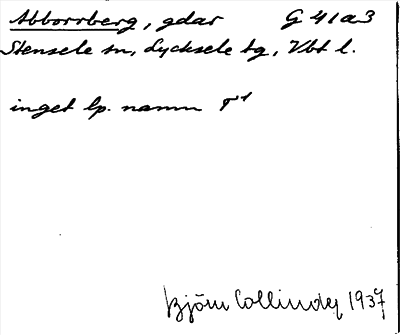 Abborrberg, gdar G 41 a 3
Stensele sn, Lycksele tg, Vbt l.
inget lp. namn T¹
Björn Collinder 1937